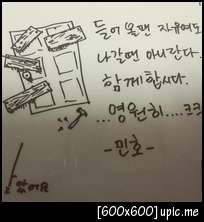 들어올땐 자유여도
나갈땐 아니란다.
함께합시다.
...영원히....ㅋㅋ
-민호-
았어요
[600x600] upic.me